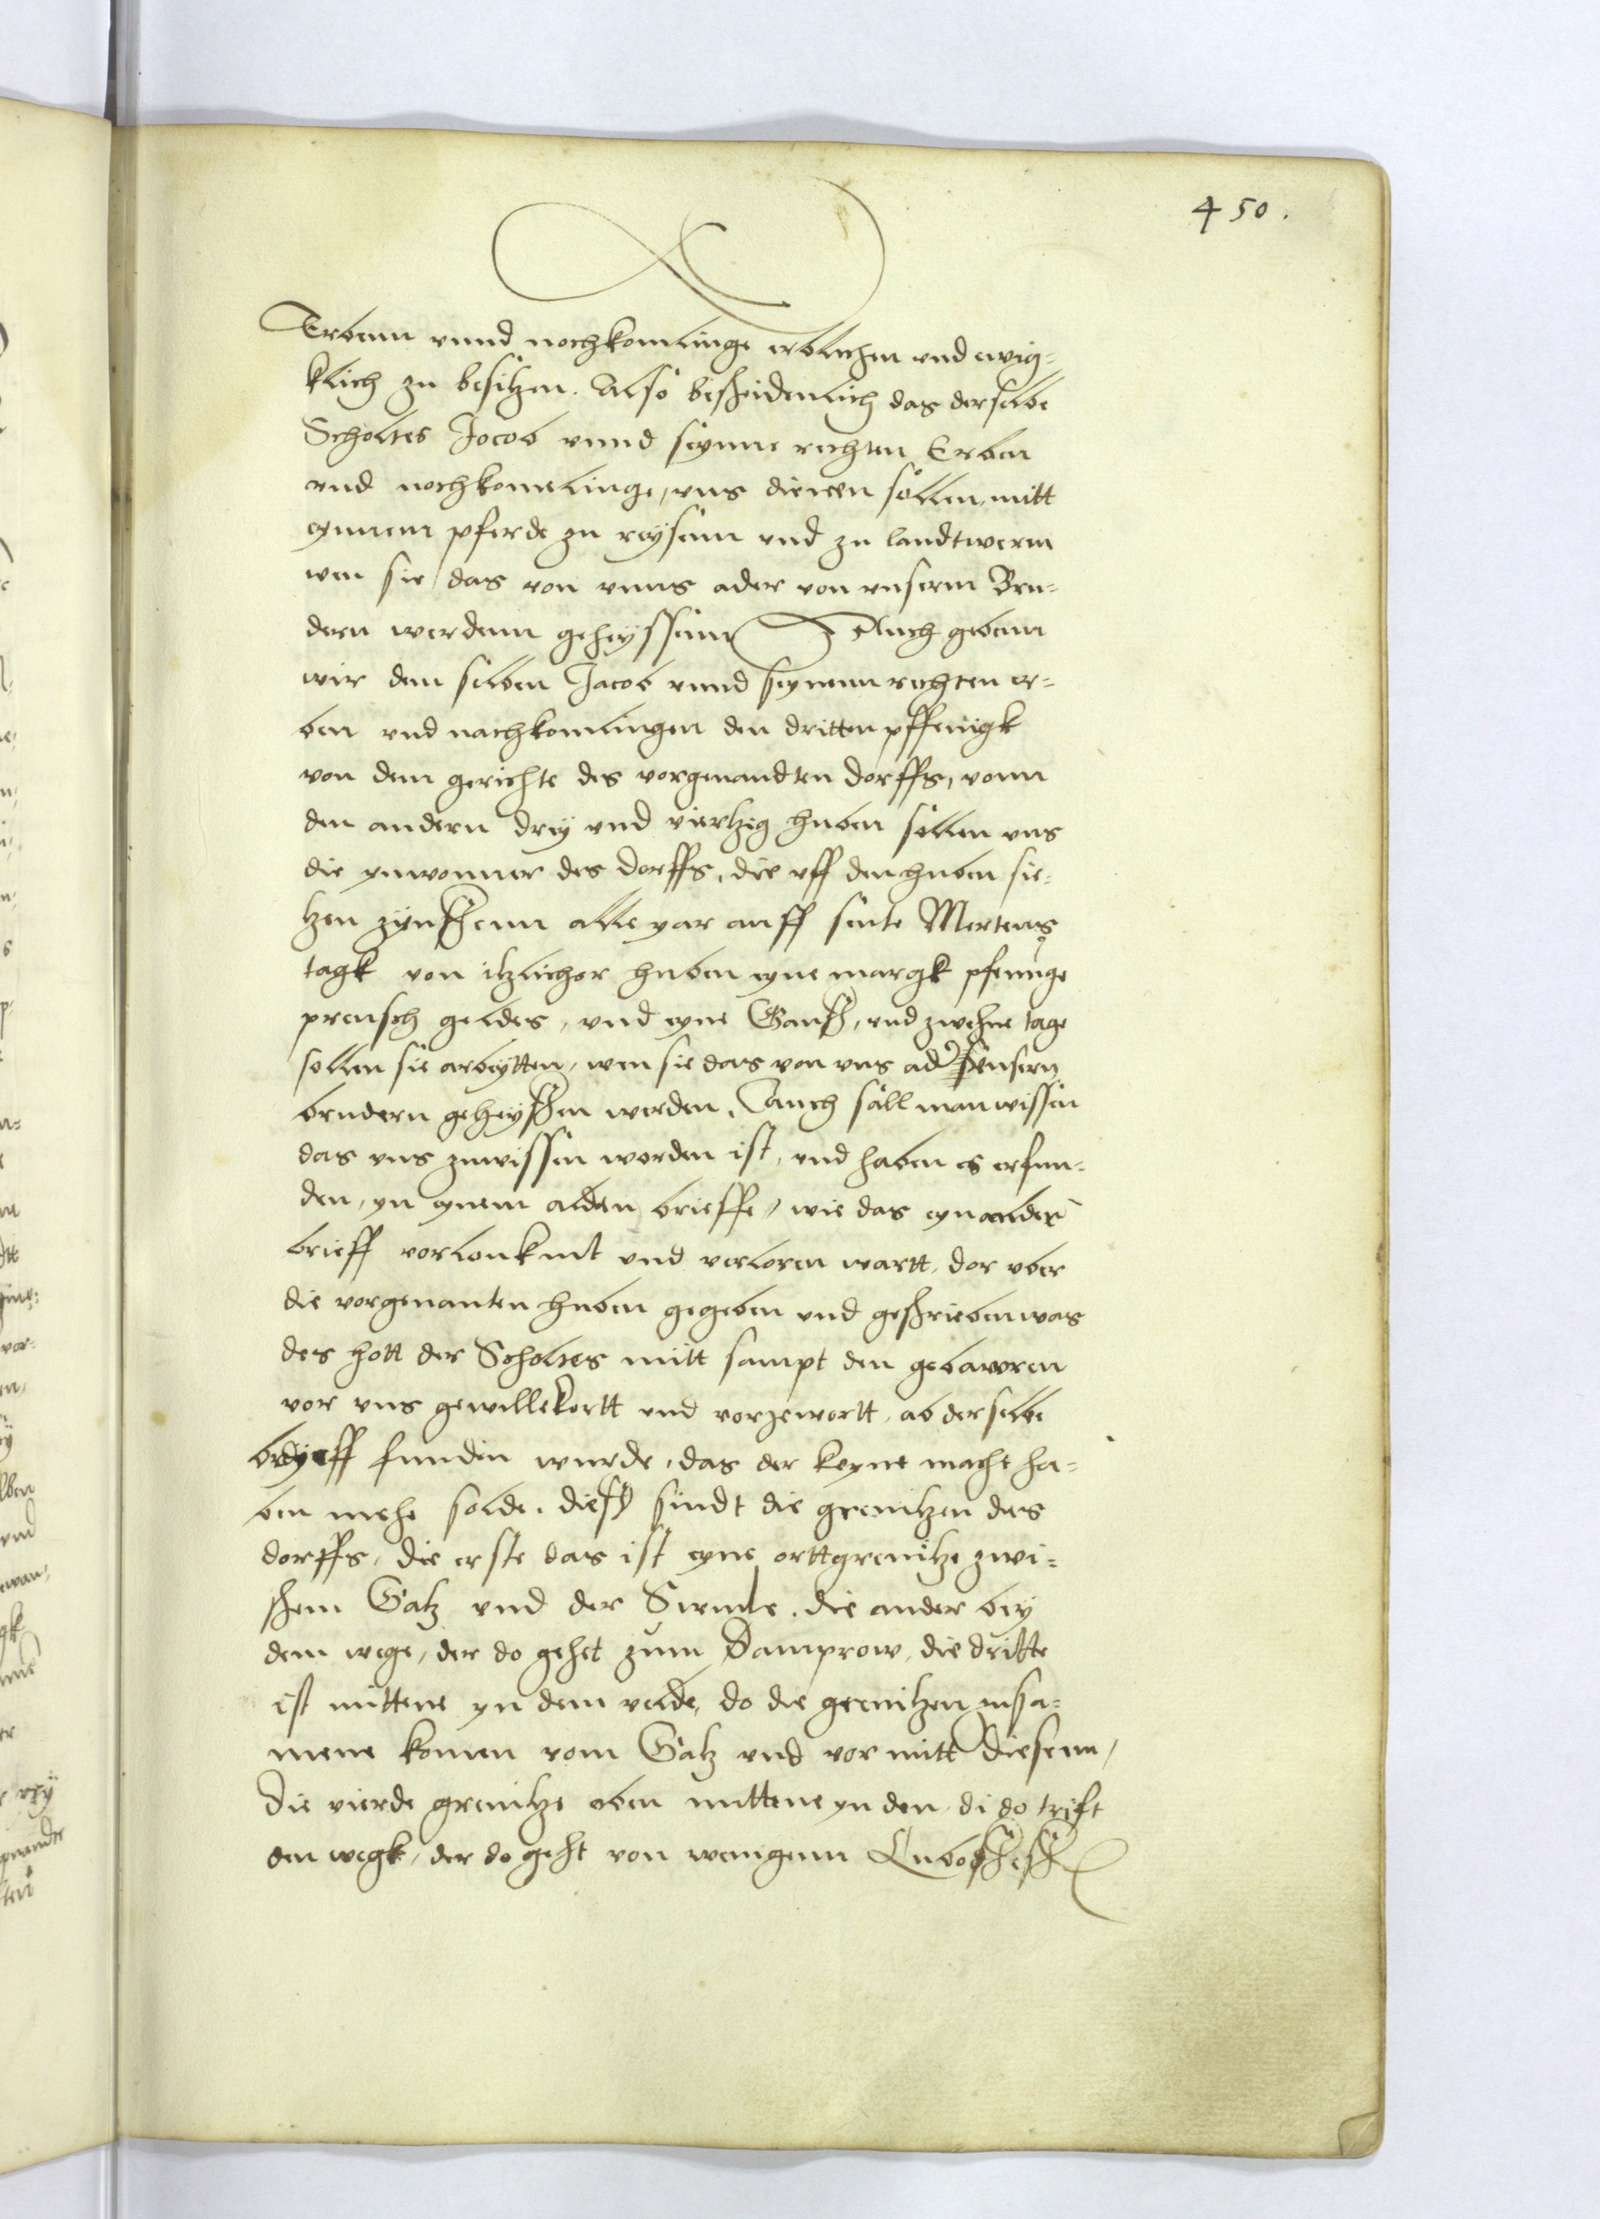 450.
Erbenn vnnd nochkomlinge erblichen vnd ewig=
klich zu besitzen. Also bescheidenlich das derselbe
Scholtes Jocob vnnd seynne rechten Erben
vnd nochkomelinge, vns dienen sollen, mitt
eynnem pferde zu reysenn vnd zu landtweren
wen sie das von vnns ader von vnsernn Bru=
dern werdenn geheyssenn Auch gebenn
wir dem selben Jacob vnnd seynenn rechten er=
ben vnd nachkomlingen den dritten pffenigk
von dem gerichte des vorgenandten dorffs, vonn
den andern drey vnd viertzig huben sollen vns
die ynwonner des dorffs, die vff den huben sie=
tzen zynschenn alle yar auff sinte Mertens
tagk von itzlicher huben eyne margk pfennge
preusch geldes, vnd eyne Gansch, vnd zwehne tage
sollen sie arbeytten, wen sie das von vns ader vnsern
brudern geheyschen werden. Auch sall man wissen
das vns zuwissen worden ist, vnd haben es erfun=
den, yn eynem alden brieffe, wie das eyn ander
brieff vorlonkent vnd verloren wartt, dor vber
die vorgenanten huben gegeben vnd geschrieben was
des hott der Scholtes mitt sampt den gebawren
vor vns gewillekortt vnd vorzewortt, ab derselbe
bryeff funden wurde, das der keyne macht ha=
ben mehe solde. diesch sindt die grenitzen des
dorffs, die erste das ist eyne orttgrenitze zwi=
schem Galz vnd der Sirmle, die ander bey
dem wege, der do gehet zum Damprow, die dritte
ist mittene yn dem velde, do die grenitzen zusa=
mene komen vom Galz vnd vor mitt diesenn,
die vierde grenitze oben mittene yn den, di do trift
den wegk, der do geht von wenigenn Luboschesch